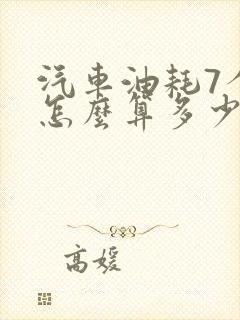 汽車油耗7
怎麼算多少
高媛